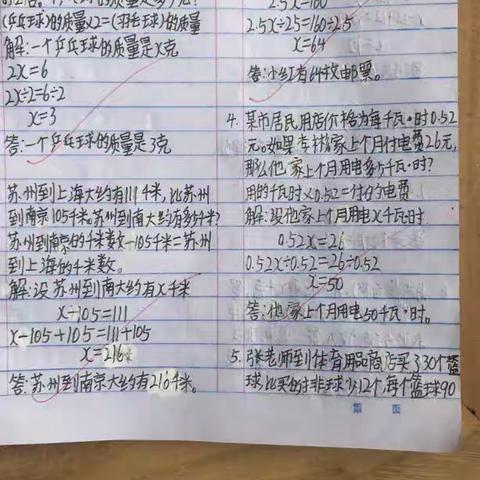 (乒乓球)的质量×2=(羽毛球)的质量
解:一个乒乓球的质量是x克
2x=6
2x÷2=6÷2
x=3
答:一个乒乓球的质量是3克
苏州到上海大约有111千米,比苏州
到南京105千米。苏州到南大约有多少千米?
苏州到南京的千米数-105千米=苏州
到上海的千米数。
解:设苏州到南京大约有x千米
x-105=111
x-105+105=111+105
x=216
答:苏州到南京大约有216千米。
2.5x=160
2.5x÷25=160÷2.5
x=64
答:小红有64枚邮票。
4. 某市居民用店价格为每千瓦·时0.52
元。如果李林家上个月付电费26元,
那么他家上个月用电多少千瓦·时?
用的千瓦时×0.52=付的电费
解:设他家上个月用电x千瓦时
0.52x=26
0.52x÷0.52=26÷0.52
x=50
答:他家上个月用电50千瓦·时。
5. 张老师到体育用品商店买了30个篮
球,比买的排球少12个,每个篮球90
第 页